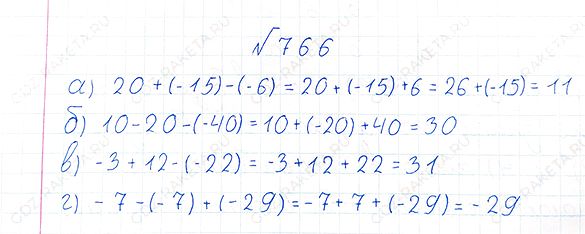 √766
а) 20 + (-15) - (-6) = 20 + (-15) + 6 = 26 + (-15) = 11
б) 10 - 20 - (-40) = 10 + (-20) + 40 = 30
в) -3 + 12 - (-22) = -3 + 12 + 22 = 31
г) -7 - (-7) + (-29) = -7 + 7 + (-29) = -29